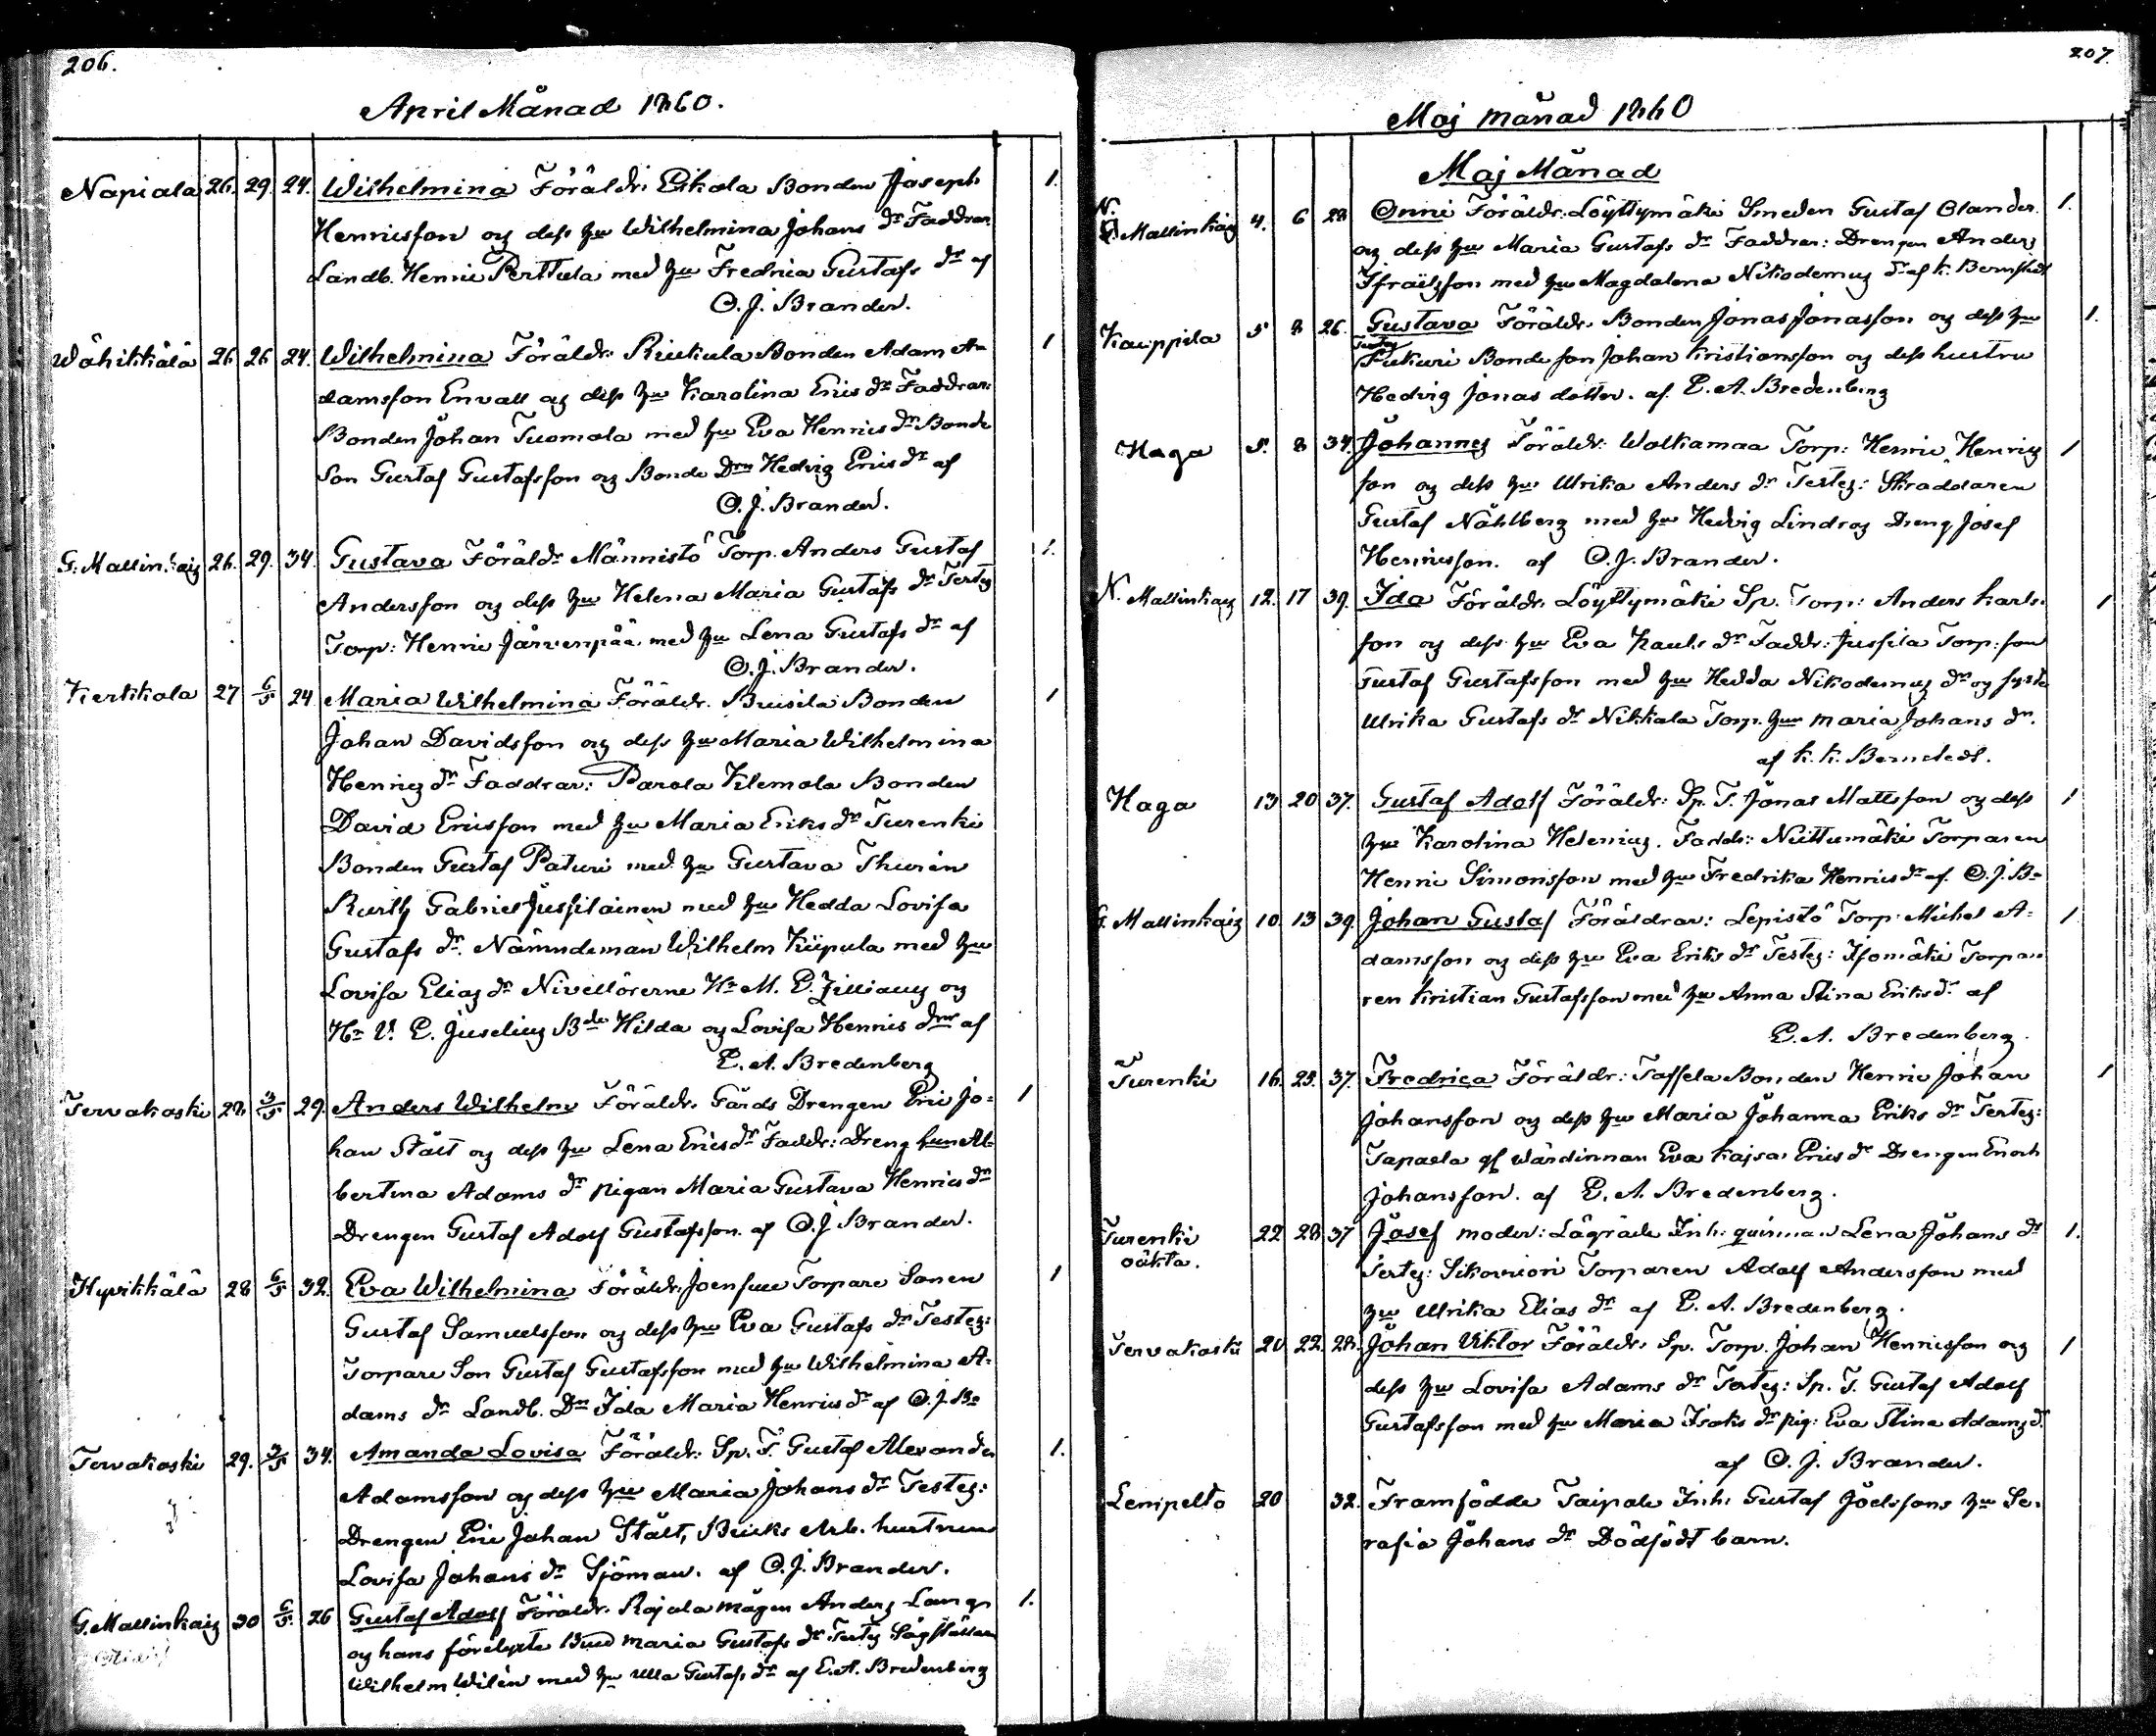 206.
April Månad 1860.
Napiala 26. 29. 24. Wilhelmina Föräldr: Eskola Bonden Joseph 1.
Henricsson og dess hu Wilhelmina Johans dr Faddrar:
Landb. Henric Perttula med hu Fredrica Gustafs dr af
O. J. Brander.
Wähikkälä 26 26 24. Wilhelmina Föräldr: Bonden Adam A= 1
damsson Envall og dess hu Karolina Erics dr Faddrar:
Bonden Johan Tuomola med hu Eva Henrics dr Bonde
Son Gustaf Gustafsson og Bonde Drn Hedvig Erics dr af
O. J. Brander.
G. Mallinkaig 26. 29. 34. Gustava Föräldr Männistö Torp. Anders Gustaf 1.
Andersson og dess hu Helena Maria Gustafs dr Testeg
Torp: Henric Järvenpää med hu Lena Gustafs dr af
O. J. Brander.
Kerkkola 27 6/5 24 Maria Wilhelmina Föräldr. Bonden 1
Johan Davidsson og dess hu Maria Wilhelmina
Henrig dr Faddrar: Parola Klemola Bonden
David Ericsson med hu Maria Eriks dr Turenki
Bonden Gustaf Paturi med hu Gustava Thurén
Gabriel Jussilainen med hu Hedda Lovisa
Gustafs dr. Nämndeman Wilhelm Kiipula med hu
Lovisa Elias dr Nivellörerne Hr M. E. Zilliacus og
Hr E. Juselius Bde Hilda og Lovisa Henrics dmr af
E. A. Bredenberg
Tervakoski 28 3/5 29. Anders Wilhelm Föräldr. Gårds Drengen Eric Jo= 1
han Stålt og dess hu Lena Erics dr Faddr: Dreng hun Al=
bertina Adams dr pigan Maria Gustava Henrics dr
Drengen Gustaf Adolf Gustafsson. af O. J. Brander.
Hyvikkälä 28 6/5 32. Eva Wilhelmina Föräldr: Joensuu Torpare Sonen 1
Gustaf Samuelsson og dess hu Eva Gustafs dr Testeg:
Torpare Son Gustaf Gustafsson med hu Wilhelmina A=
dams dr Landb. Dn Ida Maria Henrics dr af O. J. Br
Tervakoski 29. 3/5 34. Amanda Lovisa Föräldr: Sp. T. Gustaf Alexander 1.
Adamsson og dess hu Maria Johans dr Testeg:
Drengen Eric Johan Stålt, Bruks Arb. hustrun
Lovisa Johans dr Sjöman. af O. J. Brander.
G. Mallinkaig 30 6/5 26 Gustaf Adolf Föräldr. Rajala mågen Anders Lang 1.
og hans Maria Gustafs dr. Testeg
Wilhelm Wilén med hu Ulla Gustafs dr af E. A. Bredenberg
207.
Maj månad 1860
Maj Månad
N. Mallinkaig 4. 6 28 Onni Föräldr: Löyttymäki Smeden Gustaf Olander. 1.
og dess hu Maria Gustafs dr Faddrar: Drengen Anders
Israelsson med hu Magdalena Nikodemus dr af K. Bernstedt
Kauppila 5 8 26. Gustava Föräldr. Bonden Jonas Jonasson og dess hu 1.
Testeg Bonde son Johan Kristiansson og dess hustru
Hedvig Jonas dotter. af E. A. Bredenberg
Haga 5. 8 34. Johannes Föräldr: Walkamaa Torp: Henric Henrics 1
son og dess hu Ulrika Anders dr Testeg: Skraddaren
Gustaf Nåhlberg med hu Hedvig Lind og Dreng Josef
Henricsson. af O. J. Brander.
N. Mallinkaig 12. 17 39. Ida Föräldr. Löyttymäki Sp. Torp: Anders Karls 1
son og dess hu Eva Karls dr Faddr: Jussila Torp: son
Gustaf Gustafsson med hu Hedda Nikodemus dr og
Ulrika Gustafs dr Nikkala Torp. hun Maria Johans dr.
af K. K. Bernstedt.
Haga 13 20 37. Gustaf Adolf Föräldr: Sp. T. Jonas Mattsson og dess 1
hu Karolina Helenius. Faddr: Niittumäki Torparen
Henric Simonsson med hu Fredrika Henrics dr af. O. J. Br
G. Mallinkaig 10. 13 39. Johan Gustaf Föräldrar: Lepistö Torp: Michel A= 1
damsson og dess hu Eva Eriks dr Testeg: Isomäki Torpa=
ren Kristian Gustafsson med hu Anna Stina Eriks dr af
E. A. Bredenberg.
Turenki 16. 23. 37. Fredrica Föräldr: Tassela Bonden Henric Johan 1
Johansson og dess hu Maria Johanna Eriks dr Testeg:
Tapaela gf Wärdinnan Eva Kajsa Erics dr Drengen Enoch
Johansson. af E. A. Bredenberg.
Turenki 22 28 37 Josef moder: Inh: quinnan Lena Johans dr 1.
oäkta. Testeg: Sikovuori Torparen Adolf Andersson med
hu Ulrika Elias dr af E. A. Bredenberg.
Tervakoski 20 22. 28. Johan Viktor Föräldr. Sp. Torp. Johan Henricsson og 1
dess hu Lovisa Adams dr Testeg: Sp. T. Gustaf Adolf
Gustafsson med hu Maria Isaks dr pig: Eva Stina Adams dr
af O. J. Brander.
Lempelto 20 32. Framfödde Taipale Inh: Gustaf Joelssons hu Se=
rafia Johans dr Dödfödt barn.